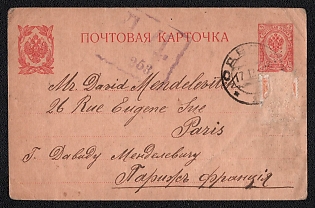 ПОЧТОВАЯ КАРТОЧКА
Mr. David Mendelevitch
26 Rue Eugene Sue
Paris
Г. Давиду Менделевичу
Парижъ франція